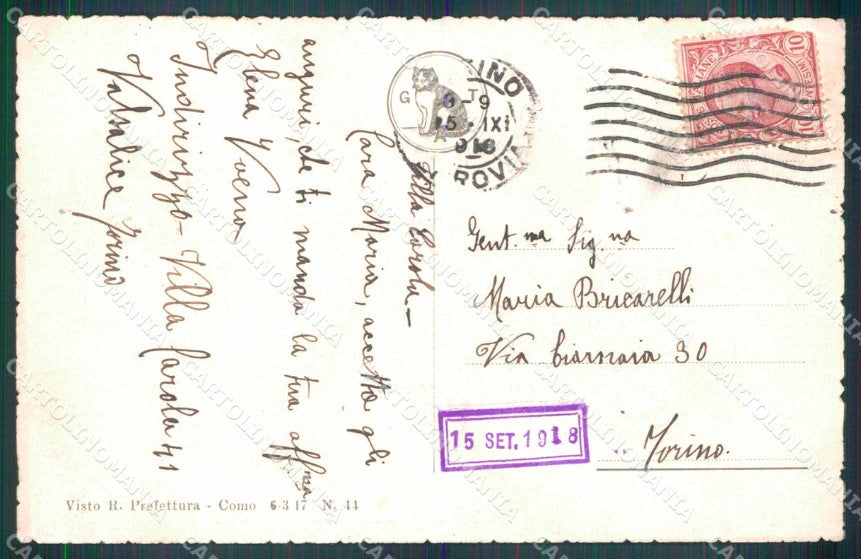 Villa Carola –
Cara Maria, accetta gli
auguri, che ti manda la tua affma
Elena Voena
Indirizzo – Villa Carola 41
Valsalice Torino
G A T
INO
8-9
15 IXI
918
ROVI
10
Gent.ma Sig.na
Maria Bricarelli
Via Ciarnaia 30
Torino.
15 SET. 1918
Visto R. Prefettura - Como 6-3 17 N. 44
CARTOLINOMANIA